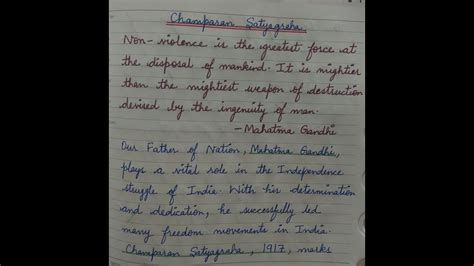 Champaran Satyagraha
Non-violence is the greatest force at
the disposal of mankind. It is mightier
than the mightiest weapon of destruction
devised by the ingenuity of man.
- Mahatma Gandhi
Our Father of Nation, Mahatma Gandhi,
plays a vital role in the Independence
struggle of India. With his determination
and dedication, he successfully led
many freedom movements in India.
Champaran Satyagraha, 1917, marks